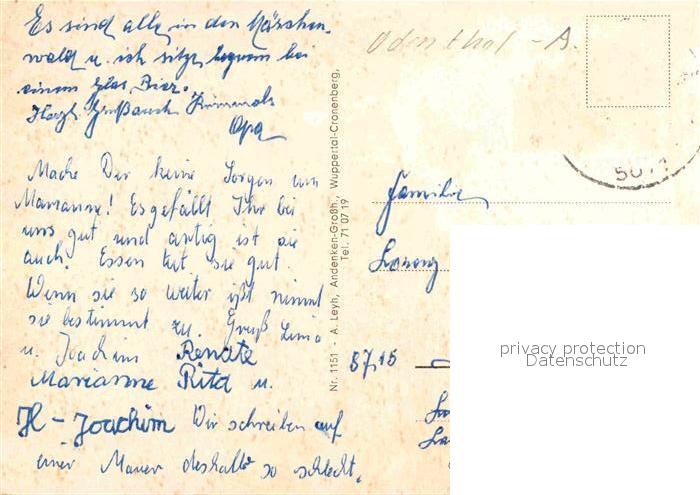 Es sind alle in den Märchen-
wald u. ich sitze bequem bei
einem Glas Bier.
Herzl. Gruß auch
Opa
Mache Dir keine Sorgen um
Marianne! Es gefällt Ihr bei
uns gut und artig ist sie
auch! Essen tut sie gut.
Wenn sie so weiter ißt nimmt
sie bestimmt zu. Gruß
u. Joachim Renate
Marianne Rita u.
H-Joachim Wir schreiben auf
einer Mauer deshalb so schlecht.
Nr. 1151 - A. Leyh, Andenken-Großh., Wuppertal-Cronenberg,
Tel. 71 07 19
Odenthal - A.
5071
Familie
Lorenz
87,15
privacy protection
Datenschutz